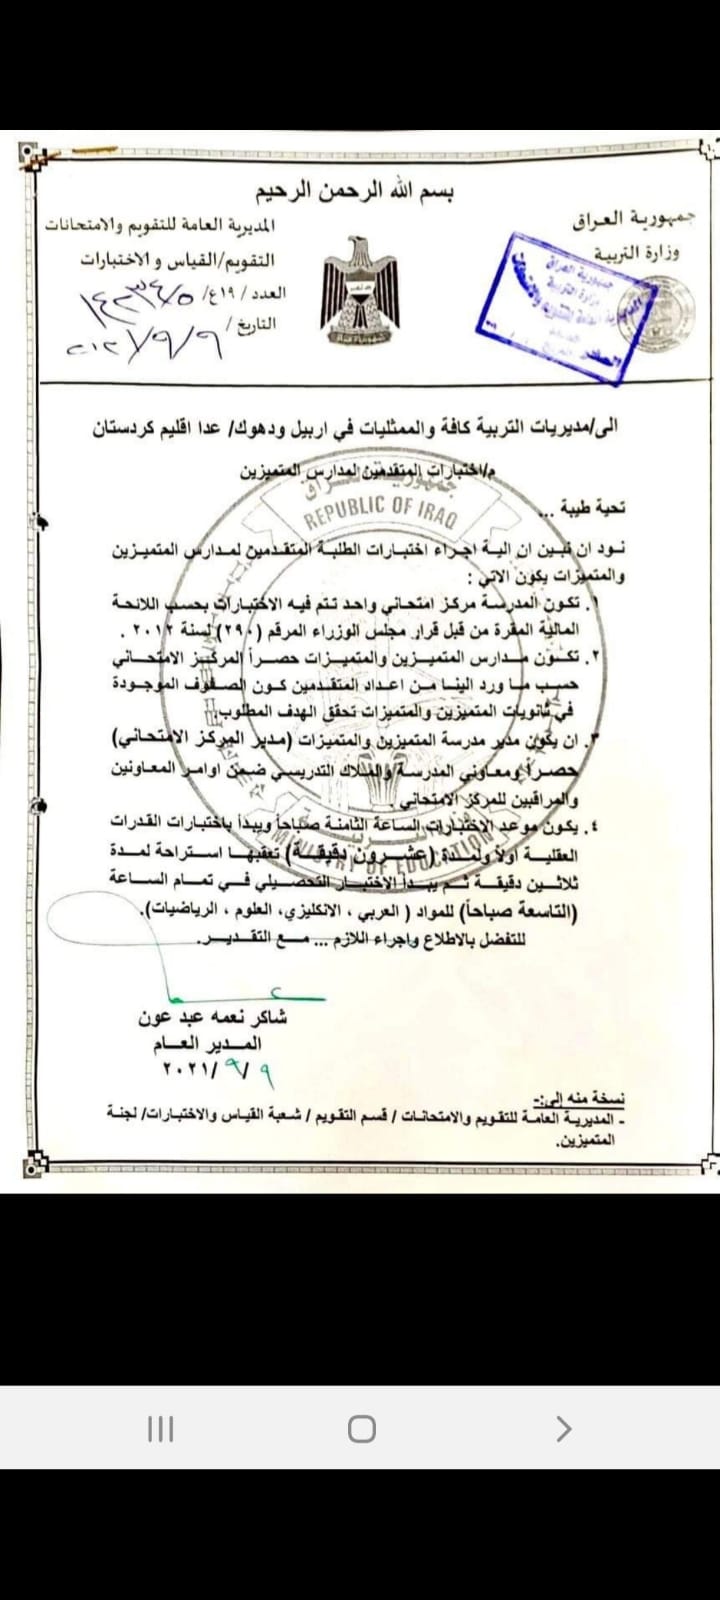 بسم الله الرحمن الرحيم
جمهورية العراق
وزارة التربية
المديرية العامة للتقويم والامتحانات
التقويم/القياس و الاختبارات
العدد / ع١٩/
التاريخ / ٢٠٢١/٩/٩
جمهورية العراق
وزارة التربية
الى/مديريات التربية كافة والممثليات في اربيل ودهوك/ عدا اقليم كردستان
م/اختبارات المتقدمين لمدارس المتميزين
REPUBLIC OF IRAQ
تحية طيبة ...
نود ان نبين ان الية اجراء اختبارات الطلبة المتقدمين لمدارس المتميزين
والمتميزات يكون الاتي :
١. تكون المدرسة مركز امتحاني واحد تتم فيه الاختبارات بحسب اللائحة
المالية المقرة من قبل قرار مجلس الوزراء المرقم (٢٩٠) لسنة ٢٠١٢ .
٢. تكون مدارس المتميزين والمتميزات حصراً المركز الامتحاني
حسب ما ورد الينا من اعداد المتقدمين كون الصفوف الموجودة
في ثانويات المتميزين والمتميزات تحقق الهدف المطلوب.
٣. ان يكون مدير مدرسة المتميزين والمتميزات (مدير المركز الامتحاني)
حصراً ومعاوني المدرسة والملاك التدريسي ضمن اوامر المعاونين
والمراقبين للمركز الامتحاني .
٤. يكون موعد الاختبارات الساعة الثامنة صباحاً ويبدأ باختبارات القدرات
العقلية اولاً ولمدة (عشرون دقيقة) تعقبها استراحة لمدة
ثلاثين دقيقة ثم يبدأ الاختبار التحصيلي في تمام الساعة
(التاسعة صباحاً) للمواد ( العربي ، الانكليزي، العلوم ، الرياضيات).
MINISTRY OF EDUCATION
للتفضل بالاطلاع واجراء اللازم ... مع التقدير.
شاكر نعمه عبد عون
المدير العام
٢٠٢١/٩/٩
نسخة منه إلى:-
- المديرية العامة للتقويم والامتحانات / قسم التقويم / شعبة القياس والاختبارات/ لجنة
المتميزين.